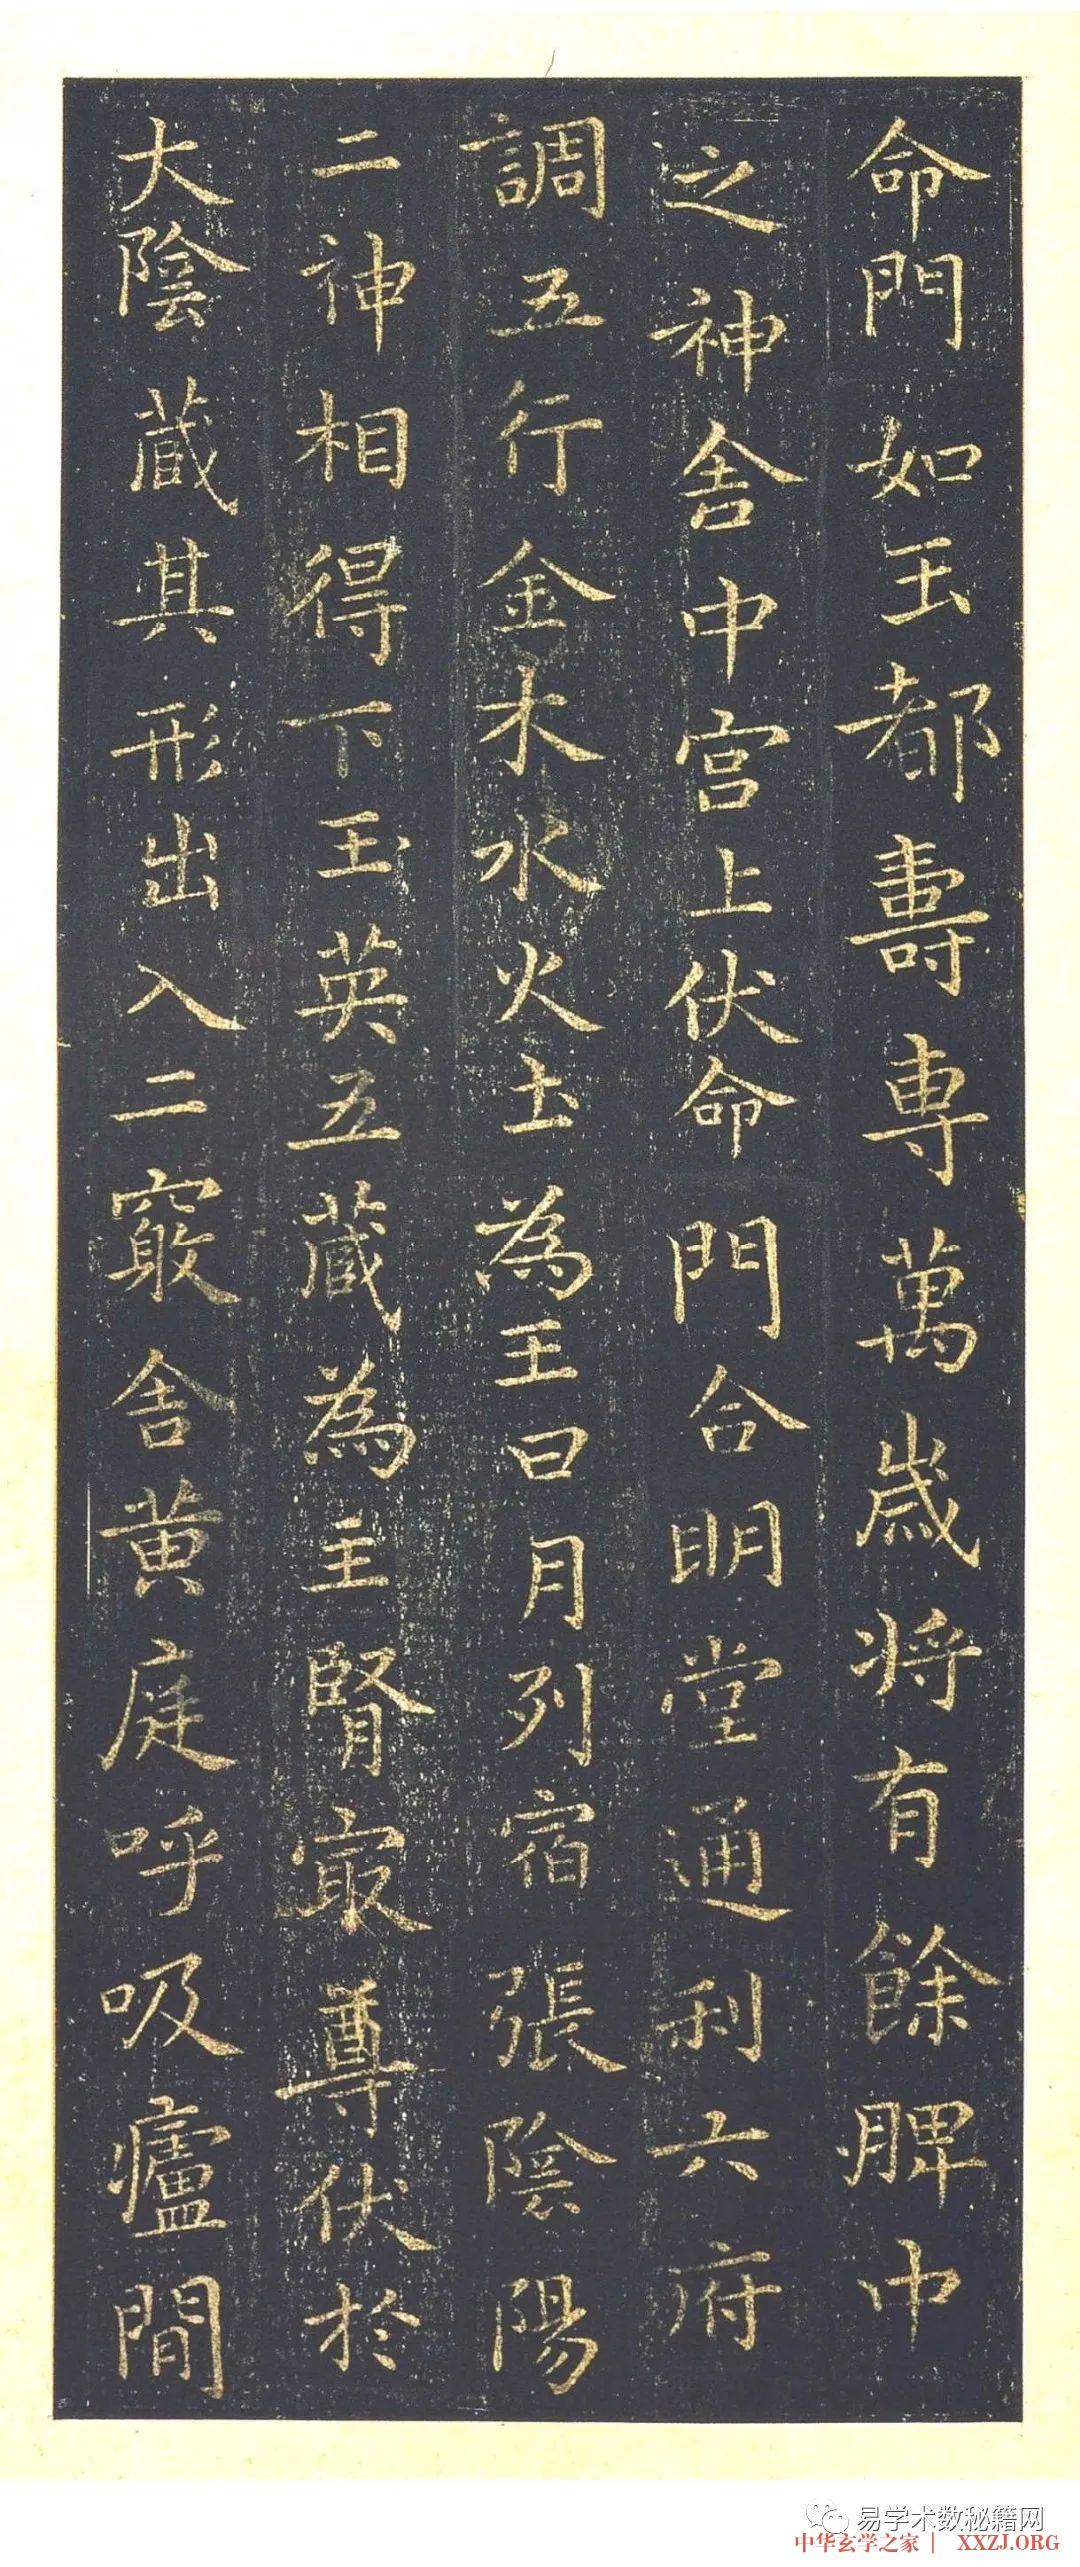 命門如玉都壽専萬歲将有餘脾中
之神舍中宫上伏命門合明堂通利六府
調五行金木水火土為王日月列宿張陰陽
二神相得下玉英五藏為主腎冣尊伏於
大陰藏其形出入二竅舍黄庭呼吸廬間
易学术数秘籍网
中华玄学之家| XXZJ.ORG